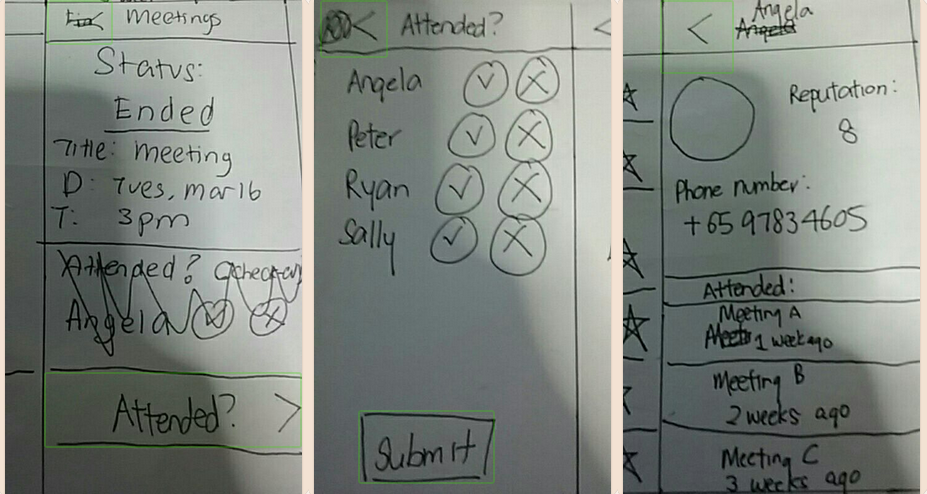 Meetings
Status:
Ended
Title: Meeting
D: Tues, Mar 16
T: 3pm
Attended?
Angela
Attended? >
< Attended?
Angela
Peter
Ryan
Sally
Submit
< Angela
Angela
Reputation:
8
Phone number:
+65 97834605
Attended:
Meeting A
1 week ago
Meeting B
2 weeks ago
Meeting C
3 weeks ago